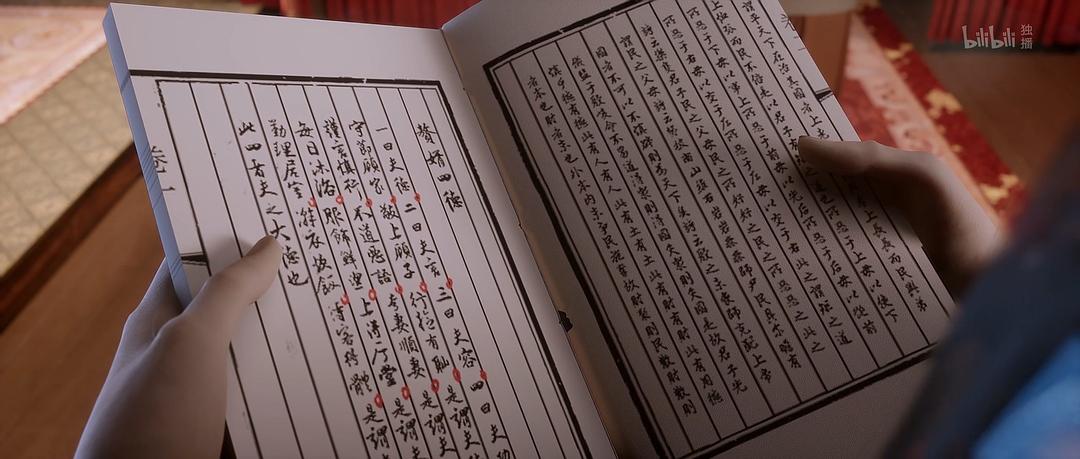 謂平天下在治其國者上老上長長而民興弟
上恤孤而民不倍是以君子有之道也所惡于上毋以使下
所惡于下毋以事上所惡于前毋以先后所惡于后毋以從前
所惡于右毋以交于左所惡于左毋以交于右此之謂矩之道
詩云樂只君子民之父母民之所好好之民之所惡惡之此之
謂民之父母詩云節彼南山維石岩岩赫赫師尹民具爾瞻有
國者不可以不慎辟則為天下僇矣詩云殷之未喪師克配上帝
儀監于殷峻命不易道得眾則得國失眾則失國是故君子先
慎乎德有德此有人有人此有土有土此有財有財此有用德
者本也財者末也外本內末爭民施奪故財聚則民散財散則
贅婿四德
一曰夫德 二曰夫言 三曰夫容 四曰夫功
守節顧家 敬上顧子 行有恥 是謂夫
謹言慎行 不道惡語 孝妻順妻 是謂夫
每日沐浴 服飾鮮潔 上得廳堂 是謂夫
勤理居室 衣飲飯 待客得體 是謂
此四者夫之大德也
卷一
bilibili 独播